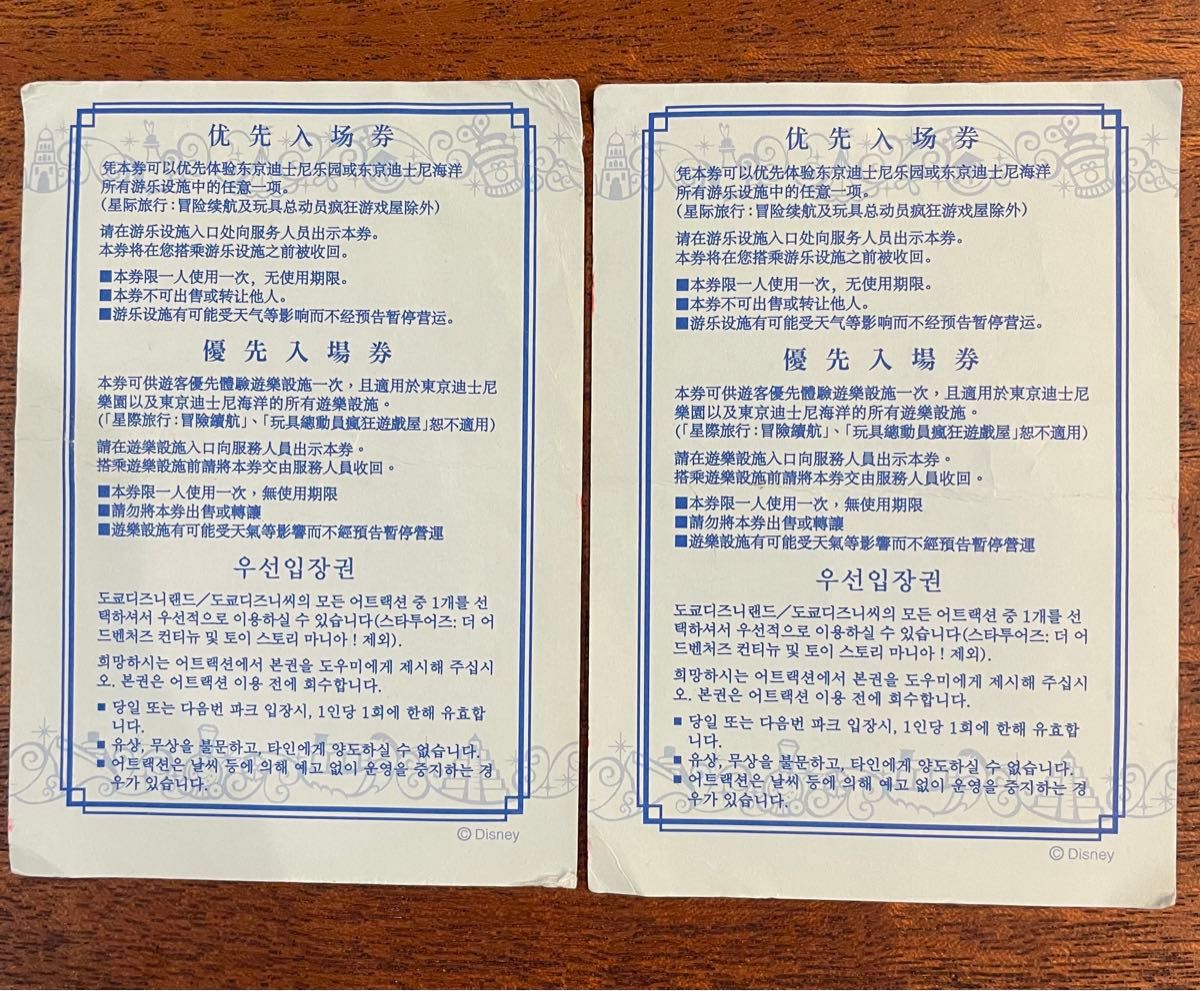 优先入场券
凭本券可以优先体验东京迪士尼乐园或东京迪士尼海洋
所有游乐设施中的任意一项。
(星际旅行:冒险续航及玩具总动员疯狂游戏屋除外)
请在游乐设施入口处向服务人员出示本券。
本券将在您搭乘游乐设施之前被收回。
■本券限一人使用一次，无使用期限。
■本券不可出售或转让他人。
■游乐设施有可能受天气等影响而不经预告暂停营运。
優先入場券
本券可供遊客優先體驗遊樂設施一次，且適用於東京迪士尼
樂園以及東京迪士尼海洋的所有遊樂設施。
(「星際旅行:冒險續航」、「玩具總動員瘋狂遊戲屋」恕不適用)
請在遊樂設施入口向服務人員出示本券。
搭乘遊樂設施前請將本券交由服務人員收回。
■本券限一人使用一次，無使用期限
■請勿將本券出售或轉讓
■遊樂設施有可能受天氣等影響而不經預告暫停營運
우선입장권
도쿄디즈니랜드／도쿄디즈니씨의 모든 어트랙션 중 1개를 선
택하셔서 우선적으로 이용하실 수 있습니다(스타투어즈: 더 어
드벤처즈 컨티뉴 및 토이 스토리 마니아 ! 제외).
희망하시는 어트랙션에서 본권을 도우미에게 제시해 주십시
오. 본권은 어트랙션 이용 전에 회수합니다.
■ 당일 또는 다음번 파크 입장시, 1인당 1회에 한해 유효합
니다.
■ 유상, 무상을 불문하고, 타인에게 양도하실 수 없습니다.
■ 어트랙션은 날씨 등에 의해 예고 없이 운영을 중지하는 경
우가 있습니다.
© Disney
优先入场券
凭本券可以优先体验东京迪士尼乐园或东京迪士尼海洋
所有游乐设施中的任意一项。
(星际旅行:冒险续航及玩具总动员疯狂游戏屋除外)
请在游乐设施入口处向服务人员出示本券。
本券将在您搭乘游乐设施之前被收回。
■本券限一人使用一次，无使用期限。
■本券不可出售或转让他人。
■游乐设施有可能受天气等影响而不经预告暂停营运。
優先入場券
本券可供遊客優先體驗遊樂設施一次，且適用於東京迪士尼
樂園以及東京迪士尼海洋的所有遊樂設施。
(「星際旅行:冒險續航」、「玩具總動員瘋狂遊戲屋」恕不適用)
請在遊樂設施入口向服務人員出示本券。
搭乘遊樂設施前請將本券交由服務人員收回。
■本券限一人使用一次，無使用期限
■請勿將本券出售或轉讓
■遊樂設施有可能受天氣等影響而不經預告暫停營運
우선입장권
도쿄디즈니랜드／도쿄디즈니씨의 모든 어트랙션 중 1개를 선
택하셔서 우선적으로 이용하실 수 있습니다(스타투어즈: 더 어
드벤처즈 컨티뉴 및 토이 스토리 마니아 ! 제외).
희망하시는 어트랙션에서 본권을 도우미에게 제시해 주십시
오. 본권은 어트랙션 이용 전에 회수합니다.
■ 당일 또는 다음번 파크 입장시, 1인당 1회에 한해 유효합
니다.
■ 유상, 무상을 불문하고, 타인에게 양도하실 수 없습니다.
■ 어트랙션은 날씨 등에 의해 예고 없이 운영을 중지하는 경
우가 있습니다.
© Disney